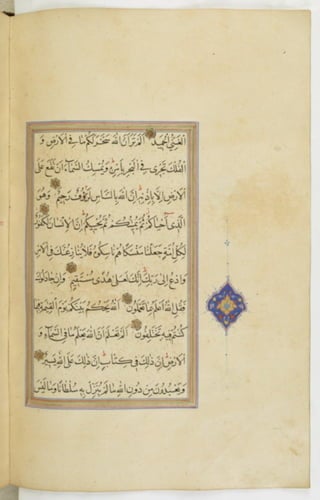 الْغَنِيُّ الْحَمِيدُ اَلَمْ تَرَ اَنَّ اللهَ سَخَّرَ لَكُمْ مَا فِي الْاَرْضِ وَ
الْفُلْكَ تَجْرِي فِي الْبَحْرِ بِاَمْرِهِ وَيُمْسِكُ السَّمَاءَ اَنْ تَقَعَ عَلَى
الْاَرْضِ اِلَّا بِاِذْنِهِ اِنَّ اللهَ بِالنَّاسِ لَرَؤُفٌ رَحِيمٌ وَهُوَ
الَّذِي اَحْيَاكُمْ ثُمَّ يُمِيتُكُمْ ثُمَّ يُحْيِيكُمْ اِنَّ الْاِنْسَانَ لَكَفُورٌ
لِكُلِّ اُمَّةٍ جَعَلْنَا مَنْسَكًا هُمْ نَاسِكُوهُ فَلَا يُنَازِعُنَّكَ فِي الْاَمْرِ
وَادْعُ اِلَى رَبِّكَ اِنَّكَ لَعَلَى هُدًى مُسْتَقِيمٍ وَاِنْ جَادَلُوكَ
فَقُلِ اللهُ اَعْلَمُ بِمَا تَعْمَلُونَ اَللهُ يَحْكُمُ بَيْنَكُمْ يَوْمَ الْقِيمَةِ فِيمَا
كُنْتُمْ فِيهِ تَخْتَلِفُونَ اَلَمْ تَعْلَمْ اَنَّ اللهَ يَعْلَمُ مَا فِي السَّمَاءِ وَ
الْاَرْضِ اِنَّ ذٰلِكَ فِي كِتَابٍ اِنَّ ذٰلِكَ عَلَى اللهِ يَسِيرٌ
وَيَعْبُدُونَ مِنْ دُونِ اللهِ مَا لَمْ يُنَزِّلْ بِهِ سُلْطَانًا وَمَا لَيْسَ